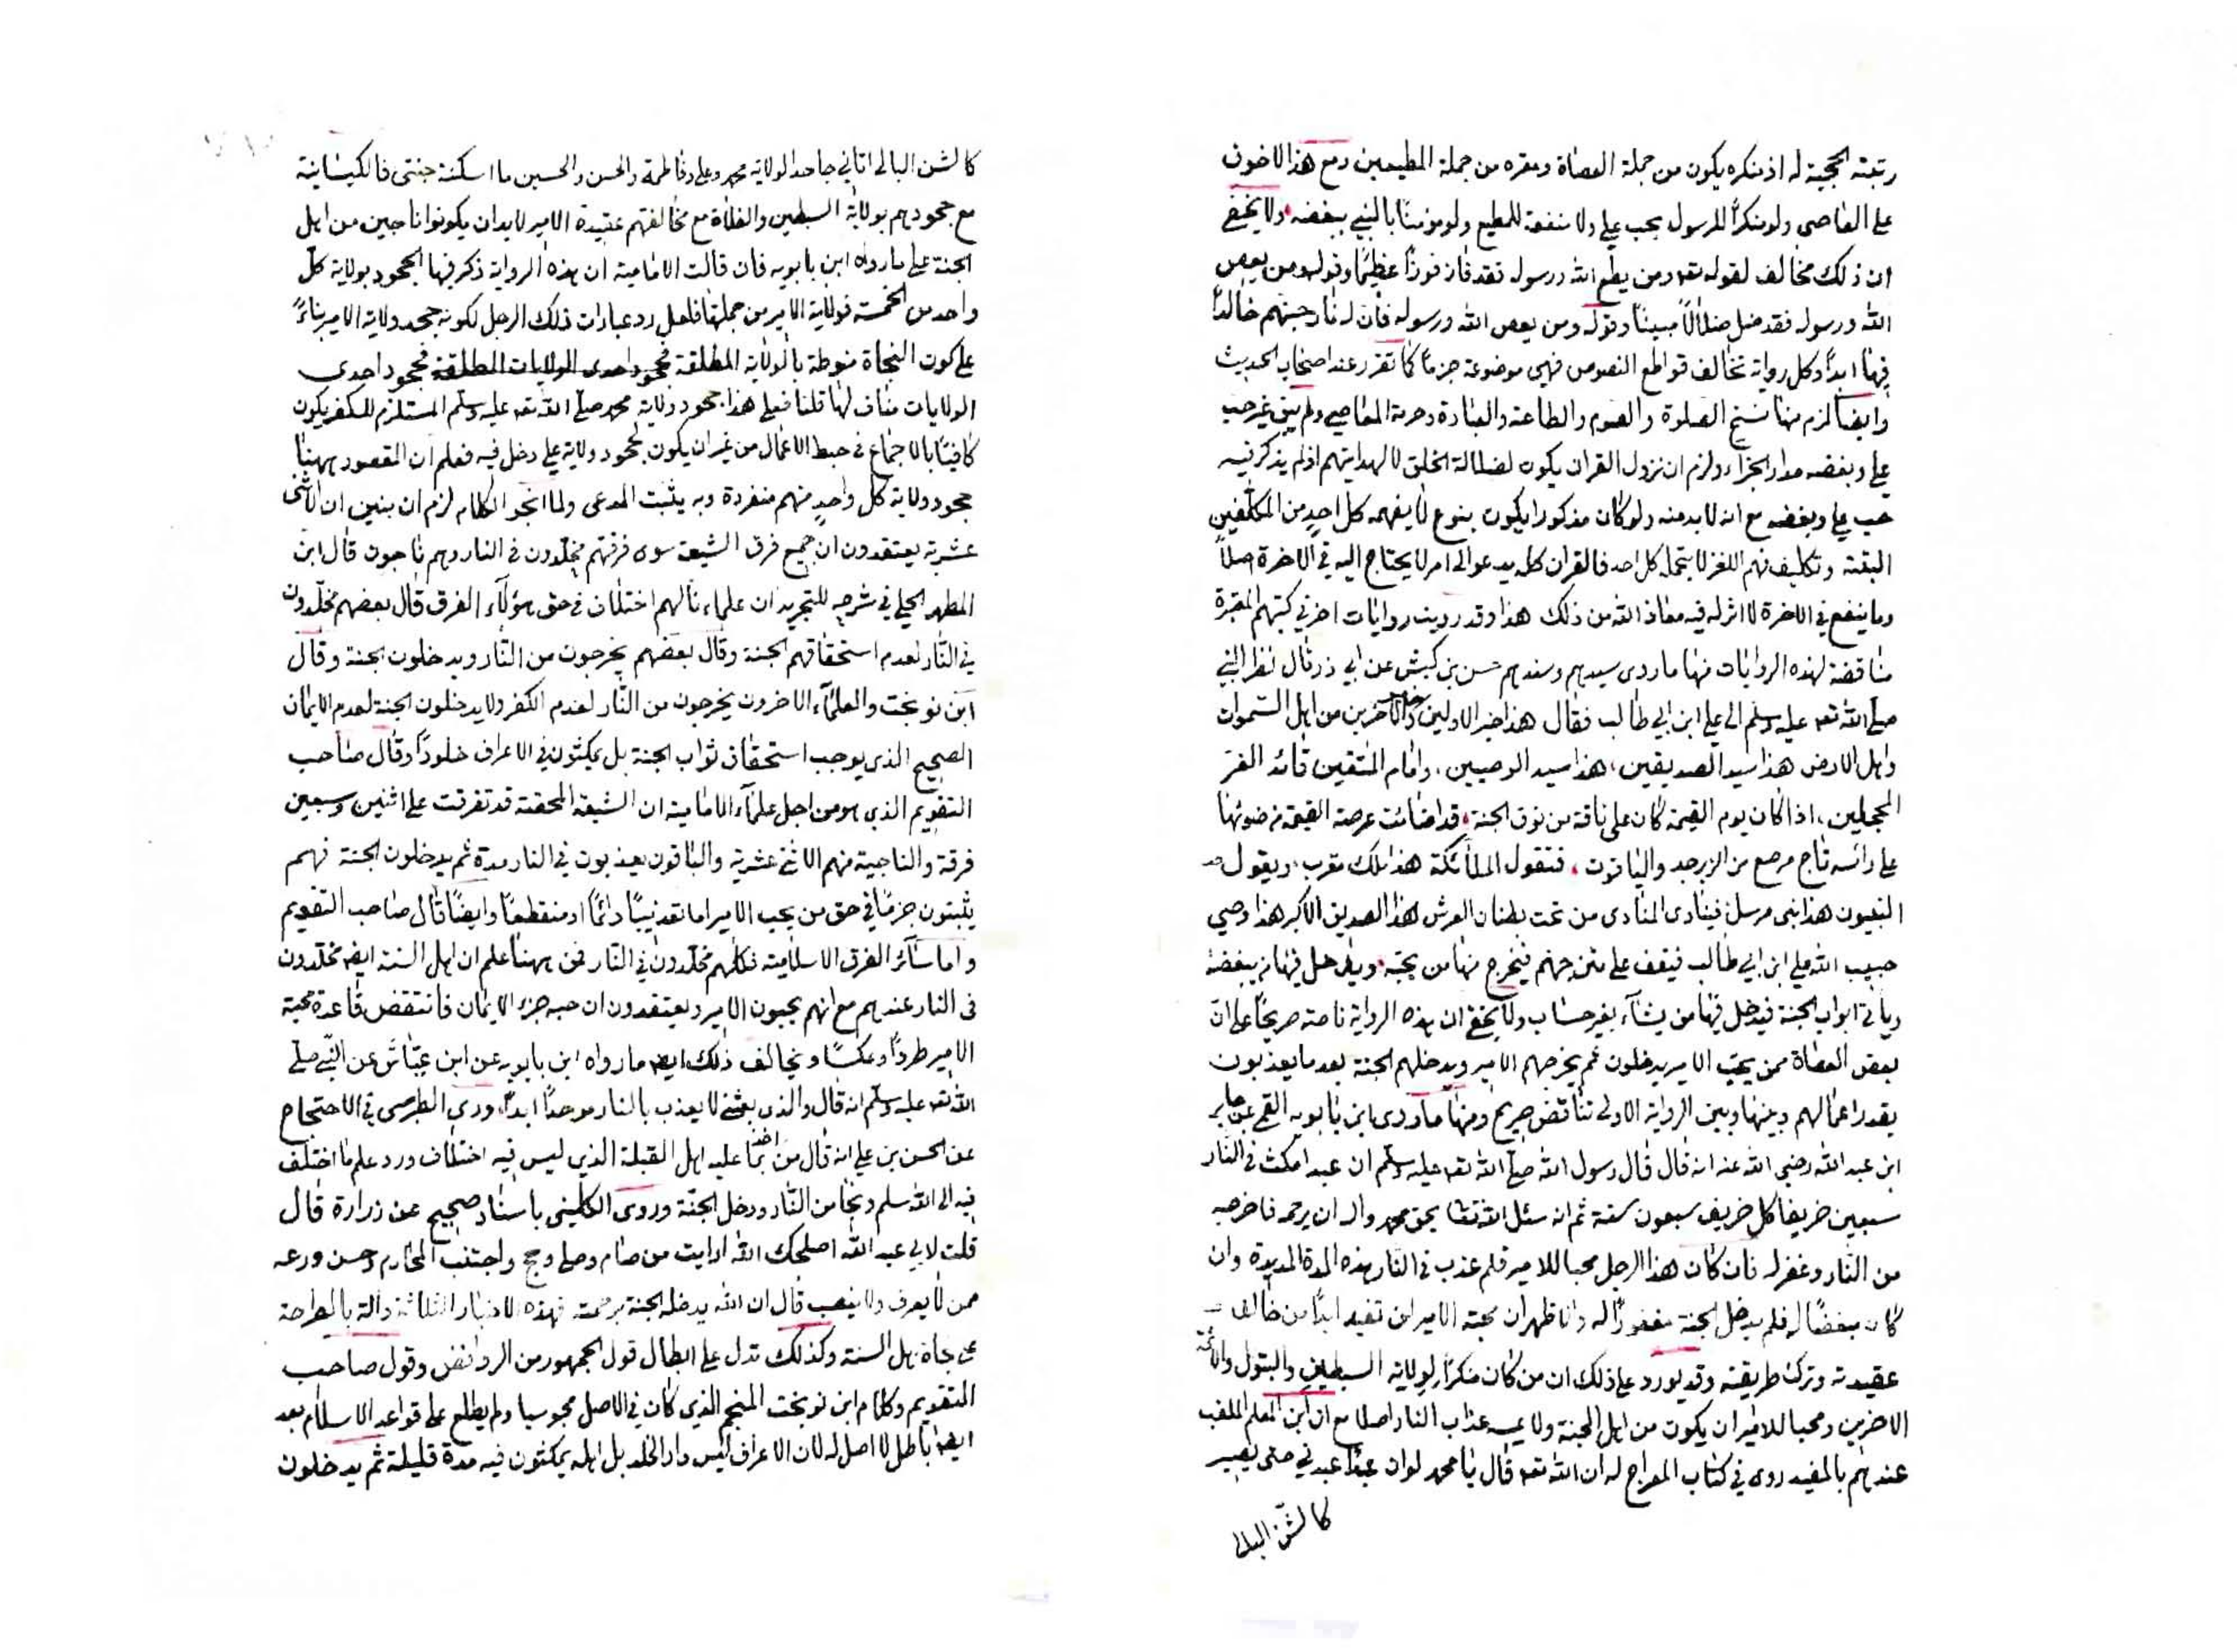 رتبته الحجية له اذ منكره يكون من جملة العصاة ومقره من جملة المطيعين ومع هذا لا خوف
على العاصى ولو منكرا للرسول بحب على ولا منفعة للمطيع ولو مؤمنا بالنبي ببغضه ولا يخفى
ان ذلك مخالف لقوله تعه ومن يطع الله ورسوله فقد فاز فوزا عظيما وقوله ومن يعص
الله ورسوله فقد ضل ضلالا مبينا وقوله ومن يعص الله ورسوله فان له نار جهنم خالدا
فيها ابدا وكل رواية تخالف قواطع النصوص فهى موضوعة جزما كما تقرر عند اصحاب الحديث
وايضا لزم منها نسخ الصلوة والصوم والطاعة والعبادة وحرمة المعاصي ولم يبق غير حب
على وبغضه مدار الجزاء ولزم ان نزول القران يكون لضلالة الخلق لا لهدايتهم اذ لم يذكر فيه
حب على وبغضه مع انه لا بد منه ولو كان مذكورا يكون بنوع لا يفهمه كل احد من المكلفين
البتة وتكليف فهم اللغز لا يتحمله كل احد فالقران كله يدعو الى امر لا يحتاج اليه في الاخرة اصلا
وما ينفع في الاخرة لا اثر له فيه معاذ الله من ذلك هذا وقد رويت روايات اخر في كتبهم المعتبرة
مناقضة لهذه الروايات منها ما روى سيدهم وسندهم حسن بن كبش عن ابي ذر قال نظر النبي
صلى الله تعه عليه وسلم الى على ابن ابي طالب فقال هذا خير الاولين وخير الآخرين من اهل السموات
واهل الارض هذا سيد الصديقين، هذا سيد الوصيين، وامام المتقين قائد الغر
المحجلين، اذا كان يوم القيمة كان على ناقة من نوق الجنة، قد اضائت عرصة القيمة من ضوئها
على رأسه تاج مرصع من الزبرجد والياقوت، فتقول الملائكة هذا ملك مقرب، ويقول
النبيون هذا نبي مرسل فينادى المنادى من تحت بطنان العرش هذا الصديق الاكبر هذا وصي
حبيب الله على ابن ابي طالب فيقف على متن جهنم فيخرج منها من يحبه، ويدخل فيها من يبغضه
ويأتى ابواب الجنة فيدخل فيها من يشآء بغير حساب ولا يخفى ان هذه الرواية ناصة صريحا على ان
بعض العصاة ممن يحب الامير يدخلون ثم يخرجهم الامير ويدخلهم الجنة بعد ما يعذبون
بقدر اعمالهم وبينها وبين الرواية الاولى تناقض صريح ومنها ما روى ابن بابويه القمى عن جابر
ابن عبد الله رضي الله عنه انه قال قال رسول الله صلى الله تعه عليه وسلم ان عبدا مكث في النار
سبعين خريفا كل خريف سبعون سنة ثم انه سئل الله تعا بحق محمد واله ان يرحمه فاخرجه
من النار وغفر له فان كان هذا الرجل محبا للامير فلم عذب في النار بهذه المدة المديدة وان
كان مبغضا له فلم يدخل الجنة مغفورا له والاظهر ان محبة الامير لن تفيد ابدا من خالف
عقيدته وترك طريقته وقد يورد على ذلك ان من كان منكرا لولاية السبطين والبتول والائمة
الاخرين ومحبا للامير ان يكون من اهل الجنة ولا يمسه عذاب النار اصلا مع ان ابن المعلم الملقب
عندهم بالمفيد روى في كتاب المعراج له ان الله تعه قال يا محمد لو ان عبدا عبدني حتى يصير
كالشن البالى
كالشن البالى اتاني جاحدا لولاية محمد وعلى وفاطمة والحسن والحسين ما اسكنته جنتى فالكيسانية
مع جحودهم بولاية السبطين والغلاة مع مخالفتهم عقيدة الامير لا بد ان يكونوا ناجين من اهل
الجنة على ما رواه ابن بابويه فان قالت الامامية ان هذه الرواية ذكر فيها الجحود بولاية كل
واحد من الخمسة فولاية الامير من جملتها فلعل رد عبادات ذلك الرجل لكونه جحد ولاية الامير بناءً
على كون النجاة منوطة بالولاية المطلقة فجحود احدى الولايات المطلقة فجحود احدى
الولايات مناف لها قلنا فعلى هذا جحود ولاية محمد صلى الله تعه عليه وسلم المستلزم للكفر يكون
كافيا بالاجماع في حبط الاعمال من غير ان يكون لجحود ولاية على دخل فيه فعلم ان المقصود ههنا
جحود ولاية كل واحد منهم منفردة وبه يثبت المدعى ولما انجر الكلام لزم ان نبين ان الاثنى
عشرية يعتقدون ان جميع فرق الشيعة سوى فرقتهم مخلدون في النار وهم ناجون قال ابن
المطهر الحلي في شرحه للتجريد ان علماءنا لهم اختلاف في حق هؤلآء الفرق قال بعضهم مخلدون
في النار لعدم استحقاقهم الجنة وقال بعضهم يخرجون من النار ويدخلون الجنة وقال
ابن نوبخت والعلمآء الاخرون يخرجون من النار لعدم الكفر ولا يدخلون الجنة لعدم الايمان
الصحيح الذي يوجب استحقاق ثواب الجنة بل يمكثون في الاعراف خلودا وقال صاحب
التقويم الذي هو من اجل علمآء الامامية ان الشيعة المحققة قد تفرقت على اثنين وسبعين
فرقة والناجية منهم الاثنى عشرية والباقون يعذبون في النار مدة ثم يدخلون الجنة فهم
يثبتون جزما في حق من يحب الامير اما تعذيبا دائما او منقطعا وايضا قال صاحب التقويم
واما سآئر الفرق الاسلامية فكلهم مخلدون في النار فمن ههنا علم ان اهل السنة ايضه مخلدون
في النار عندهم مع انهم يحبون الامير ويعتقدون ان حبه جزء الايمان فانتقض قاعدة محبة
الامير طردا وعكسا ويخالف ذلك ايضه ما رواه ابن بابويه عن ابن عباس عن النبي صلى
الله تعه عليه وسلم انه قال والذي بعثنى لا يعذب بالنار موحدا ابدا، وروى الطبرسى في الاحتجاج
عن الحسن بن على انه قال من اخذ بما عليه اهل القبلة الذي ليس فيه اختلاف ورد علم ما اختلف
فيه الى الله سلم ونجا من النار ودخل الجنة وروى الكلينى باسناد صحيح عن زرارة قال
قلت لابي عبد الله اصلحك الله ارايت من صام وصلى وحج واجتنب المحارم وحسن ورعه
ممن لا يعرف ولا ينصب قال ان الله يدخله الجنة برحمته فهذه الاخبار الثلاثة دالة بالصراحة
على نجاة اهل السنة وكذلك تدل على ابطال قول الجمهور من الروافض وقول صاحب
التقويم وكلام ابن نوبخت المنجم الذي كان في الاصل مجوسيا ولم يطلع على قواعد الاسلام بعد
ايضا باطل لا اصل له لان الاعراف ليس دار الخلد بل اهله يمكثون فيه مدة قليلة ثم يدخلون